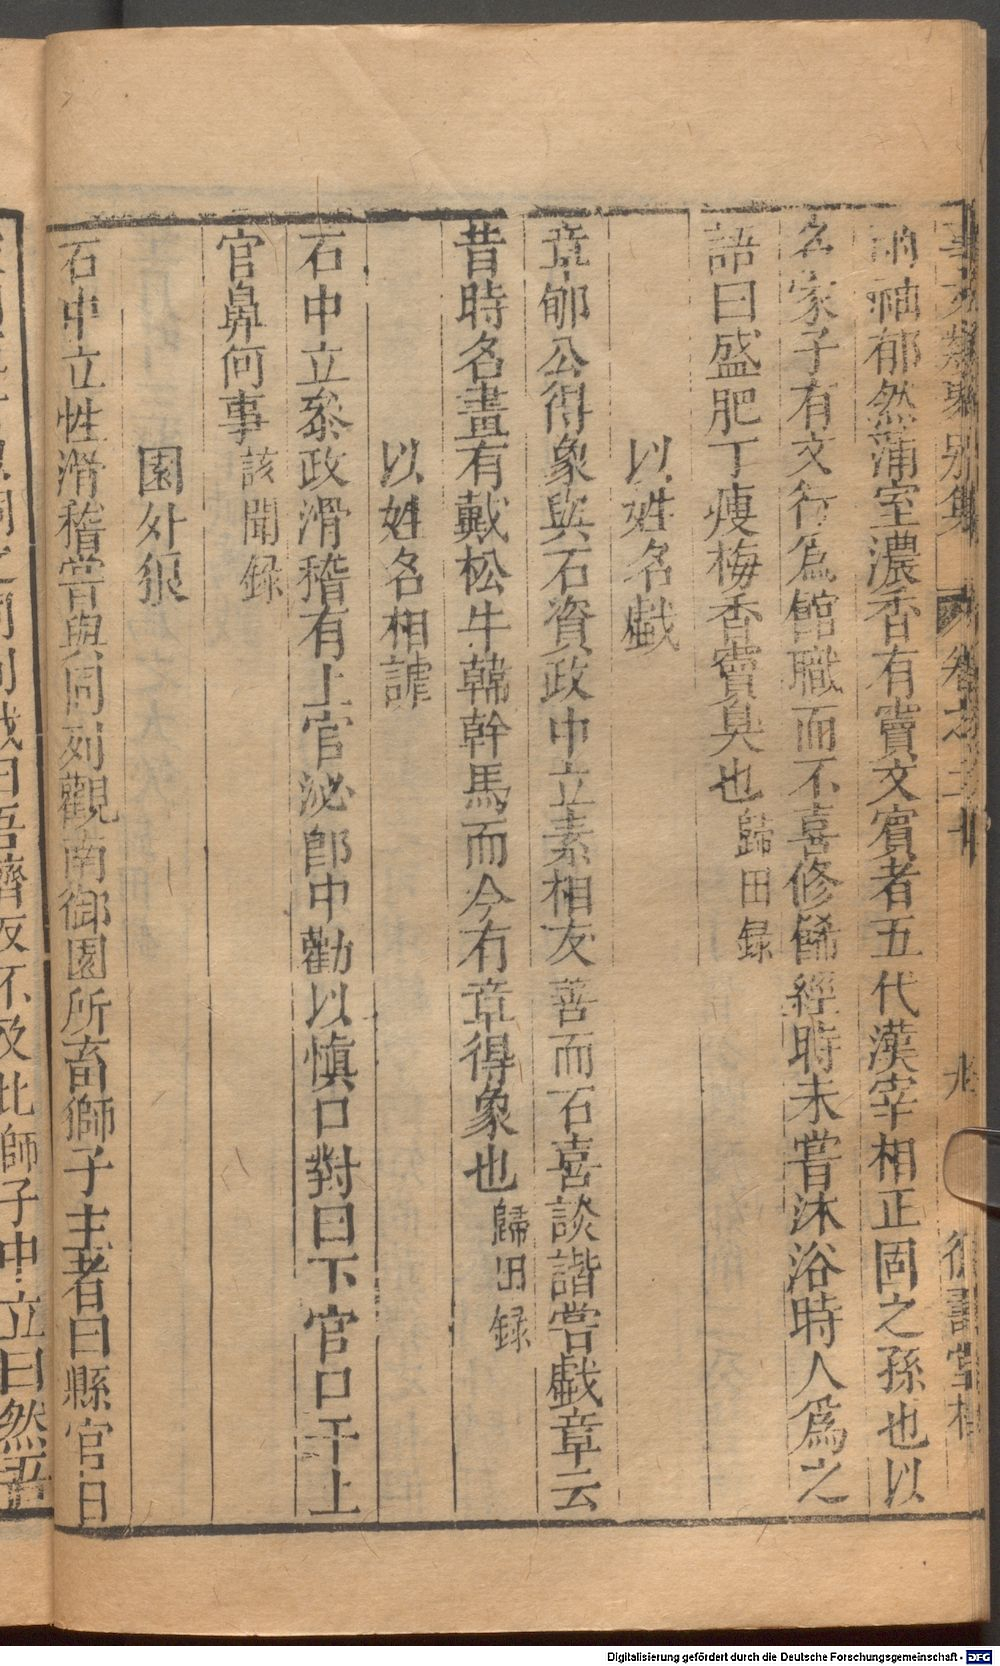 事文類聚別集 卷之二十 九 德壽堂梓
滿袖郁然滿室濃香有竇文賓者五代漢宰相正固之孫也以
名家子有文行爲館職而不喜修飾經時未嘗沐浴時人爲之
語曰盛肥丁瘦梅香竇臭也歸田録
以姓名戲
章郇公得象與石資政中立素相友善而石喜談諧嘗戲章云
昔時名畫有戴松牛韓幹馬而今有章得象也歸田録
以姓名相謔
石中立叅政滑稽有上官泌郎中勸以慎口對曰下官口干上
官鼻何事該聞録
園外狼
石中立性滑稽嘗與同列觀南御園所畜獅子主者曰縣官日
此師子中立曰然吾
Digitalisierung gefördert durch die Deutsche Forschungsgemeinschaft - DFG